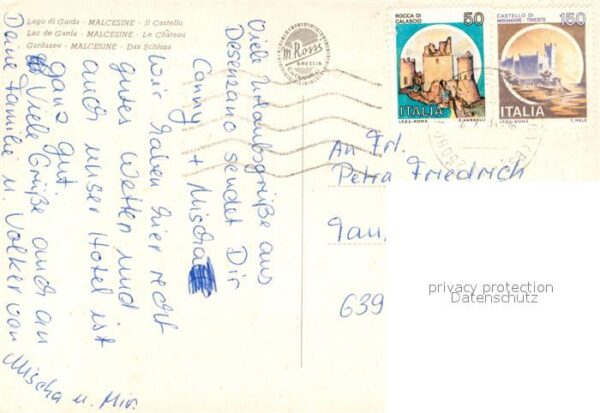 Lago di Garda - MALCESINE - Il Castello
Lac de Garda - MALCESINE - Le Château
Gardasee - MALCESINE - Das Schloss
m. Ross
BRESCIA
ROCCA DI
CALASCIO
50
ITALIA
I.P.Z.S.-ROMA
E. VANGELLI
CASTELLO DI
MIRAMARE - TRIESTE
150
ITALIA
I.P.Z.S.-ROMA
T. MELE
Viele Urlaubsgrüße aus
Desenzano sendet Dir
Conny + Mischa
Wir haben hier recht
gutes Wetter und
auch unser Hotel ist
ganz gut.
Viele Grüße auch an
Deine Familie u. Volker von
Mischa u. Mir.
An Frl.
Petra Friedrich
639
privacy protection
Datenschutz